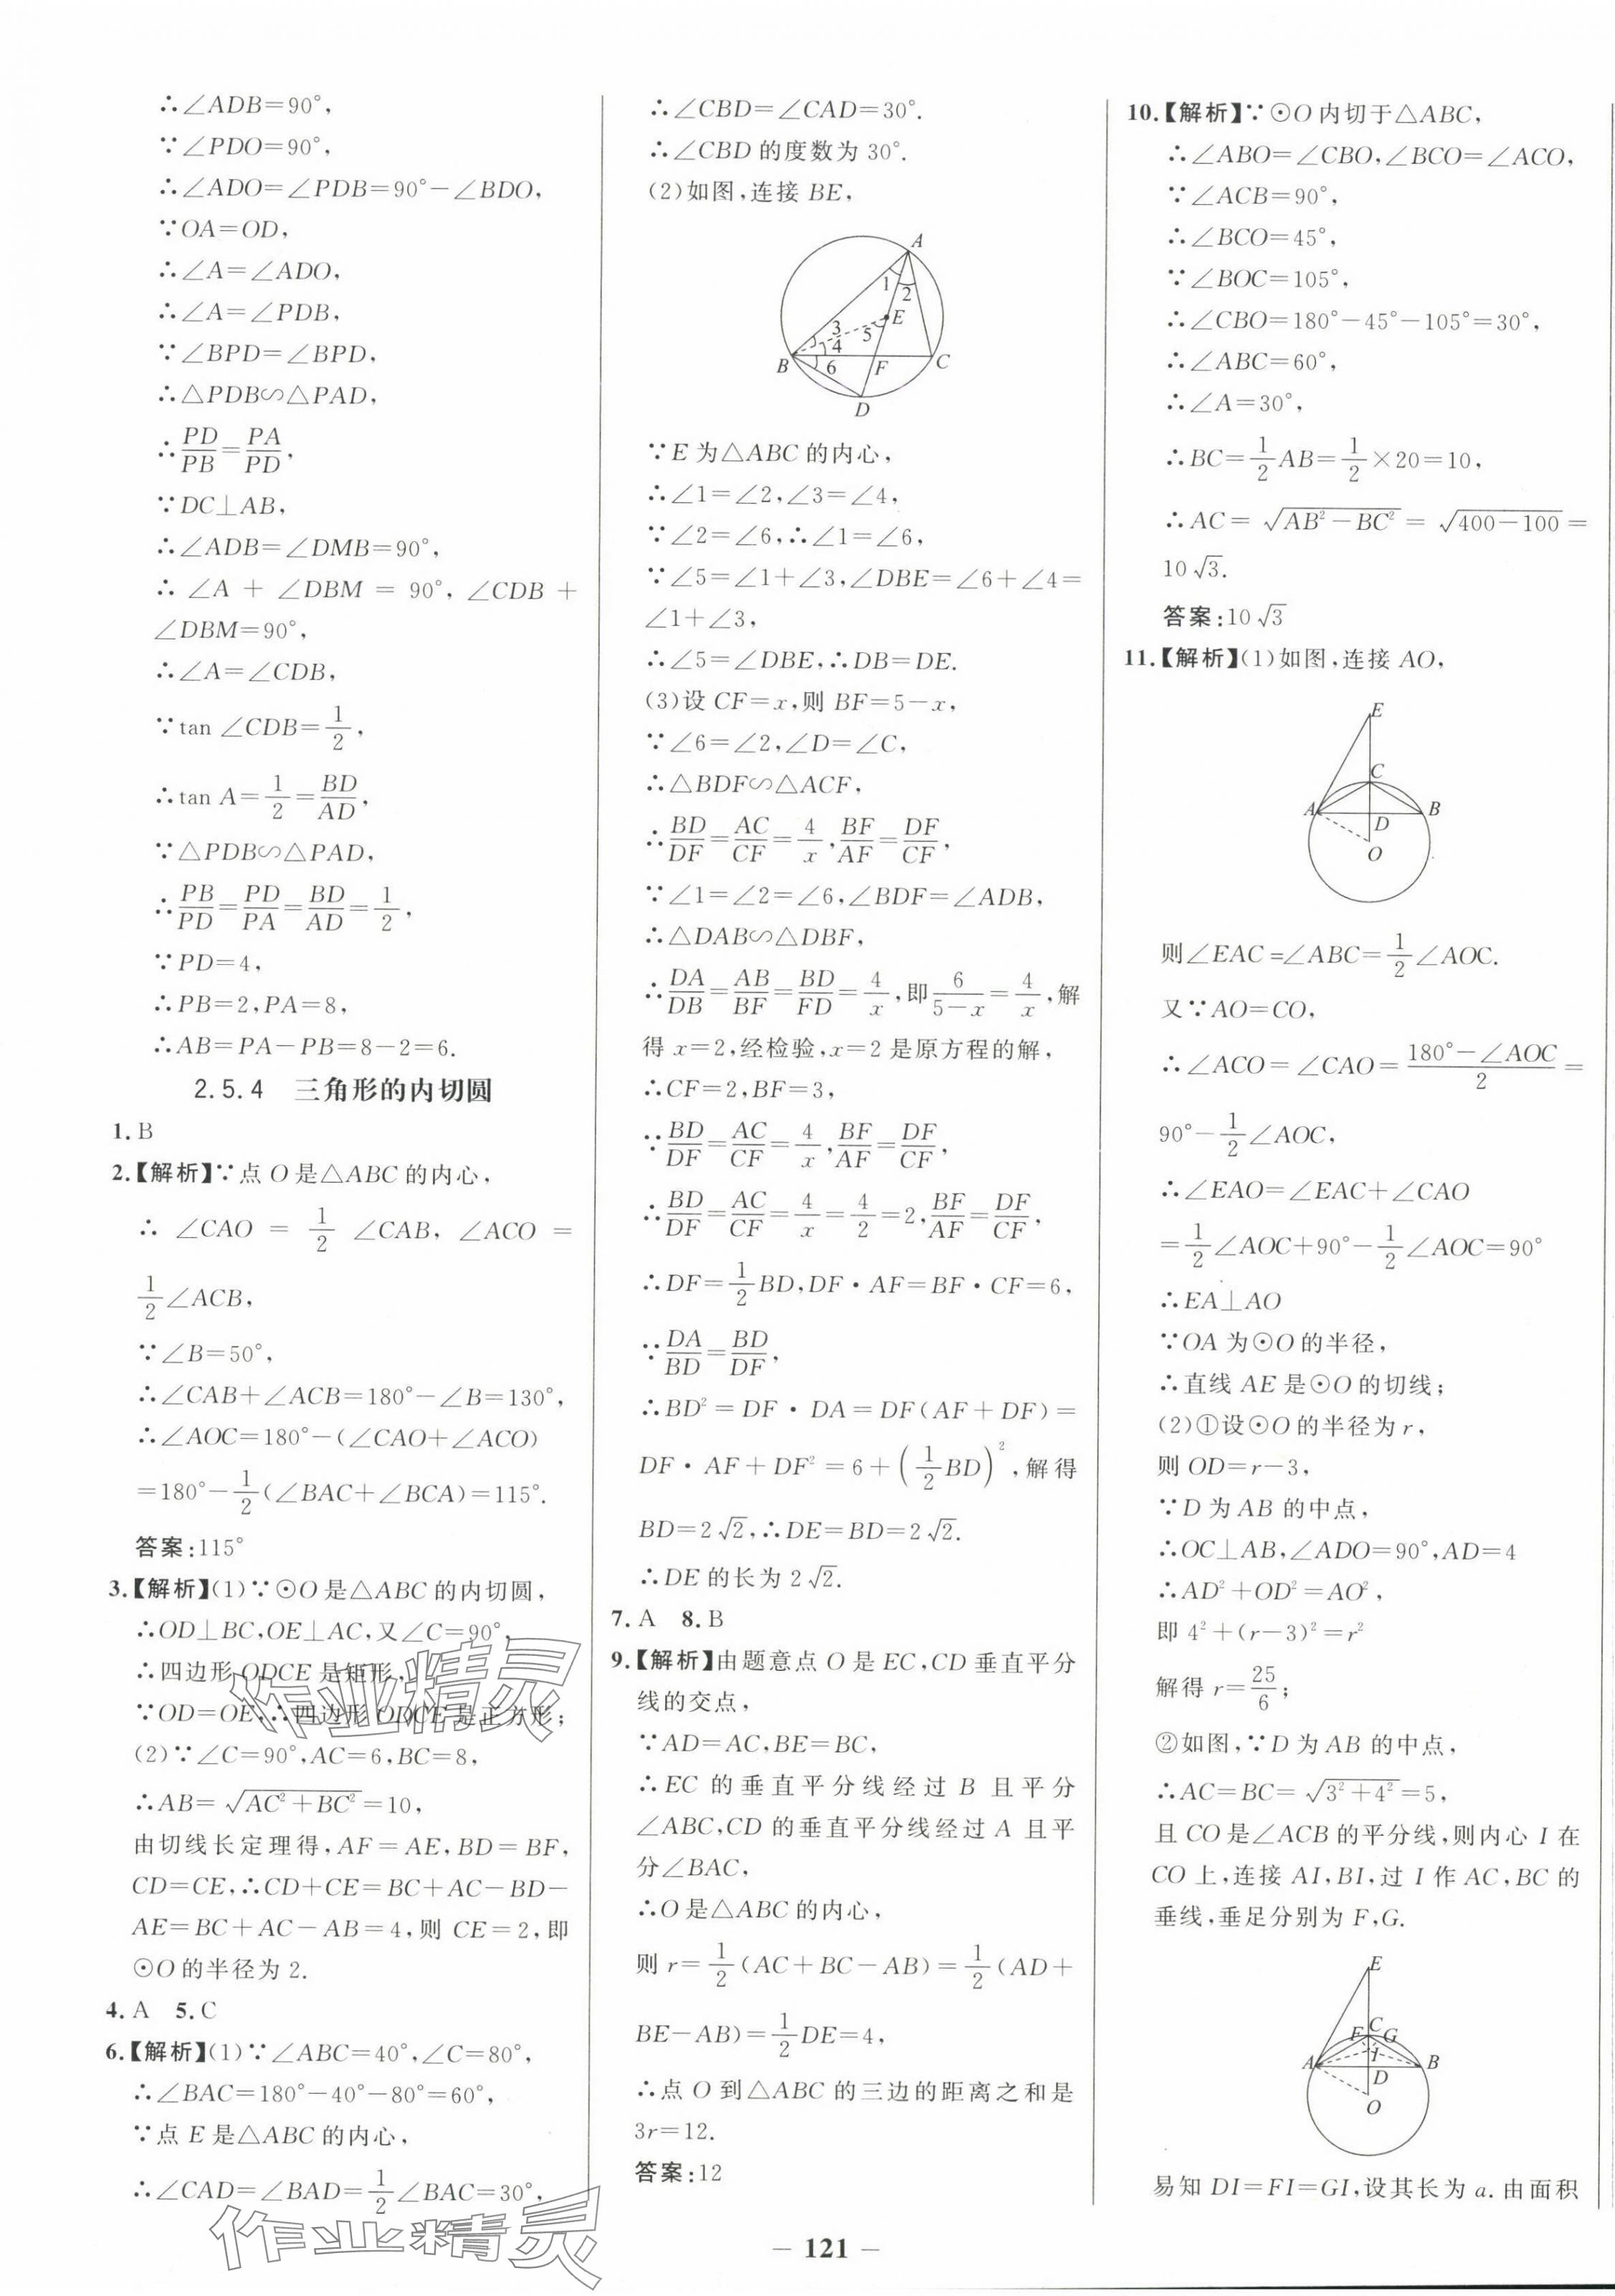 ∴∠ADB=90°,
∵∠PDO=90°,
∴∠ADO=∠PDB=90°-∠BDO,
∵OA=OD,
∴∠A=∠ADO,
∴∠A=∠PDB,
∵∠BPD=∠BPD,
∴△PDB∽△PAD,
∴PD/PB=PA/PD,
∵DC⊥AB,
∴∠ADB=∠DMB=90°,
∴ ∠A + ∠DBM = 90°, ∠CDB +
∠DBM=90°,
∴∠A=∠CDB,
∵tan ∠CDB=1/2,
∴tan A=1/2=BD/AD,
∵△PDB∽△PAD,
∴PB/PD=PD/PA=BD/AD=1/2,
∵PD=4,
∴PB=2,PA=8,
∴AB=PA-PB=8-2=6.
2.5.4 三角形的内切圆
1. B
2.【解析】∵点 O 是△ABC 的内心,
∴ ∠CAO = 1/2 ∠CAB, ∠ACO =
1/2∠ACB,
∵∠B=50°,
∴∠CAB+∠ACB=180°-∠B=130°,
∴∠AOC=180°-(∠CAO+∠ACO)
=180°-1/2(∠BAC+∠BCA)=115°.
答案:115°
3.【解析】(1)∵⊙O 是△ABC 的内切圆,
∴OD⊥BC,OE⊥AC,又∠C=90°,
∴四边形 ODCE 是矩形,
∵OD=OE,∴四边形 ODCE 是正方形;
(2)∵∠C=90°,AC=6,BC=8,
∴AB=√(AC²+BC²)=10,
由切线长定理得,AF=AE,BD=BF,
CD=CE,∴CD+CE=BC+AC-BD-
AE=BC+AC-AB=4,则 CE=2,即
⊙O 的半径为 2.
4. A 5. C
6.【解析】(1)∵∠ABC=40°,∠C=80°,
∴∠BAC=180°-40°-80°=60°,
∵点 E 是△ABC 的内心,
∴∠CAD=∠BAD=1/2∠BAC=30°,
∴∠CBD=∠CAD=30°.
∴∠CBD 的度数为 30°.
(2)如图,连接 BE,
A
1
2
E
3
5
4
B
6
F
C
D
∵E 为△ABC 的内心,
∴∠1=∠2,∠3=∠4,
∵∠2=∠6,∴∠1=∠6,
∵∠5=∠1+∠3,∠DBE=∠6+∠4=
∠1+∠3,
∴∠5=∠DBE,∴DB=DE.
(3)设 CF=x,则 BF=5-x,
∵∠6=∠2,∠D=∠C,
∴△BDF∽△ACF,
∴BD/DF=AC/CF=4/x,BF/AF=DF/CF,
∵∠1=∠2=∠6,∠BDF=∠ADB,
∴△DAB∽△DBF,
∴DA/DB=AB/BF=BD/FD=4/x,即6/(5-x)=4/x,解
得 x=2,经检验,x=2 是原方程的解,
∴CF=2,BF=3,
∵BD/DF=AC/CF=4/x,BF/AF=DF/CF,
∴BD/DF=AC/CF=4/x=4/2=2,BF/AF=DF/CF,
∴DF=1/2BD,DF·AF=BF·CF=6,
∵DA/BD=BD/DF,
∴BD²=DF·DA=DF(AF+DF)=
DF·AF+DF²=6+(1/2BD)²,解得
BD=2√2,∴DE=BD=2√2.
∴DE 的长为 2√2.
7. A 8. B
9.【解析】由题意点 O 是 EC,CD 垂直平分
线的交点,
∵AD=AC,BE=BC,
∴EC 的垂直平分线经过 B 且平分
∠ABC,CD 的垂直平分线经过 A 且平
分∠BAC,
∴O 是△ABC 的内心,
则 r=1/2(AC+BC-AB)=1/2(AD+
BE-AB)=1/2DE=4,
∴点 O 到△ABC 的三边的距离之和是
3r=12.
答案:12
10.【解析】∵⊙O 内切于△ABC,
∴∠ABO=∠CBO,∠BCO=∠ACO,
∵∠ACB=90°,
∴∠BCO=45°,
∵∠BOC=105°,
∴∠CBO=180°-45°-105°=30°,
∴∠ABC=60°,
∴∠A=30°,
∴BC=1/2AB=1/2×20=10,
∴AC=√(AB²-BC²)=√(400-100)=
10√3.
答案:10√3
11.【解析】(1)如图,连接 AO,
E
C
A
B
D
O
则∠EAC=∠ABC=1/2∠AOC.
又∵AO=CO,
∴∠ACO=∠CAO=(180°-∠AOC)/2=
90°-1/2∠AOC,
∴∠EAO=∠EAC+∠CAO
=1/2∠AOC+90°-1/2∠AOC=90°
∴EA⊥AO
∵OA 为⊙O 的半径,
∴直线 AE 是⊙O 的切线;
(2)①设⊙O 的半径为 r,
则 OD=r-3,
∵D 为 AB 的中点,
∴OC⊥AB,∠ADO=90°,AD=4
∴AD²+OD²=AO²,
即 4²+(r-3)²=r²
解得 r=25/6;
②如图,∵D 为 AB 的中点,
∴AC=BC=√(3²+4²)=5,
且 CO 是∠ACB 的平分线,则内心 I 在
CO 上,连接 AI,BI,过 I 作 AC,BC 的
垂线,垂足分别为 F,G.
E
C
F
G
I
A
B
D
O
易知 DI=FI=GI,设其长为 a.由面积
作业精灵
作业精灵
— 121 —